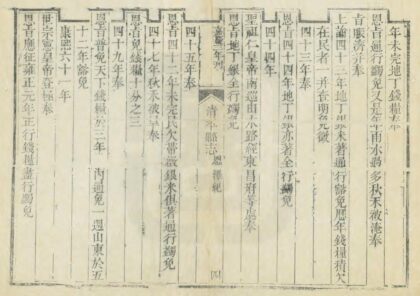 年未完地丁錢糧奉
恩旨通行蠲免又是年雨水過多秋禾被淹奉
旨賑濟并奉
上諭四十二年地丁銀米著通行豁免歷年錢糧積欠
在民者一并查明免徵
四十三年奉
恩旨四十四年地丁銀米亦著全行蠲免
四十四年
聖祖仁皇帝南巡由水路經東昌府等處奉
恩旨地丁銀全行蠲免
清平縣志
恩澤紀
四十五年奉
恩旨四十二年未完民欠帶徵銀米俱著通行蠲免
四十七年秋禾被災奉
恩旨免錢糧十分之三
四十九年奉
恩旨普免天下錢糧於三年
通免一週山東於五
十二年豁免
康熙六十一年
世宗憲皇帝登極奉
恩旨應征雍正元年正行錢糧盡行蠲免